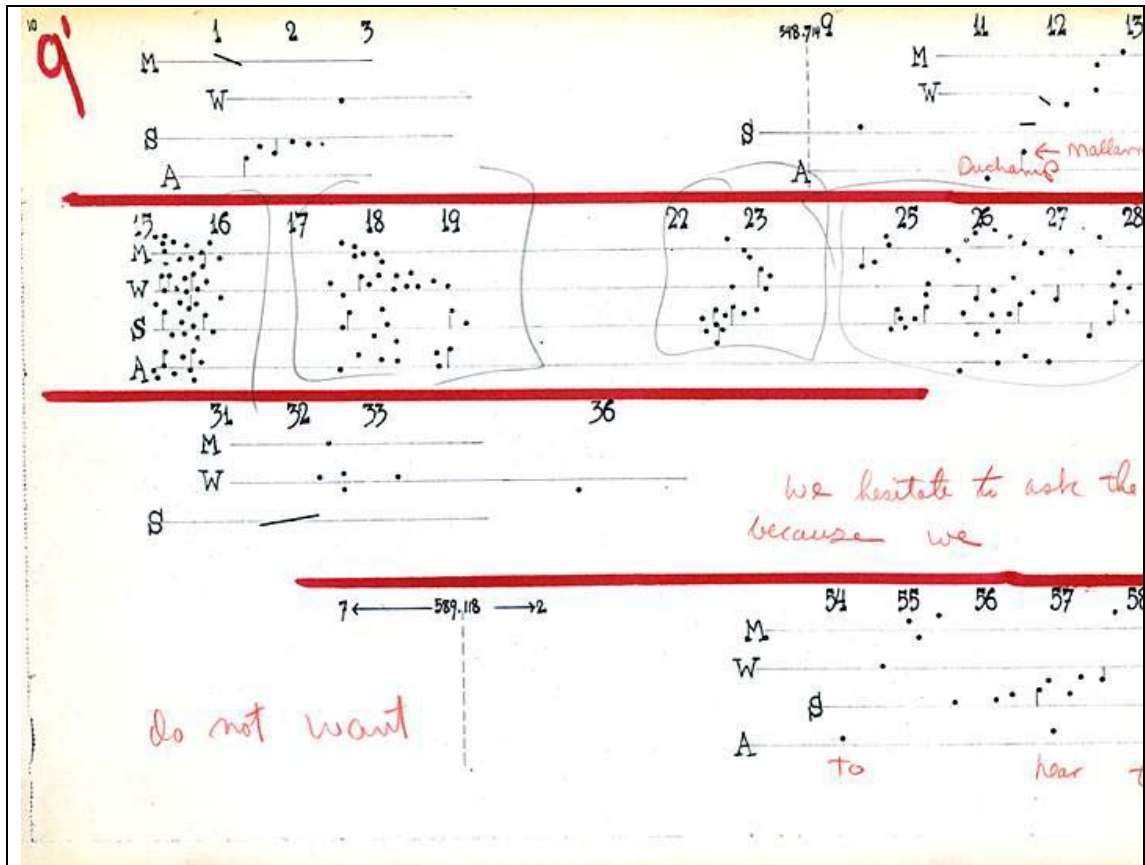 10
9'
1 2 3
548.714 9 11 12 13
M
M
W
W
S
S
← Mallarm
A
A
Duchamp
15 16 17 18 19 22 23 25 26 27 28
M
W
S
A
31 32 33 36
M
W
we hesitate to ask the
S
because we
7 ← 589.118 → 2
54 55 56 57 58
M
W
S
do not want
A
to hear t